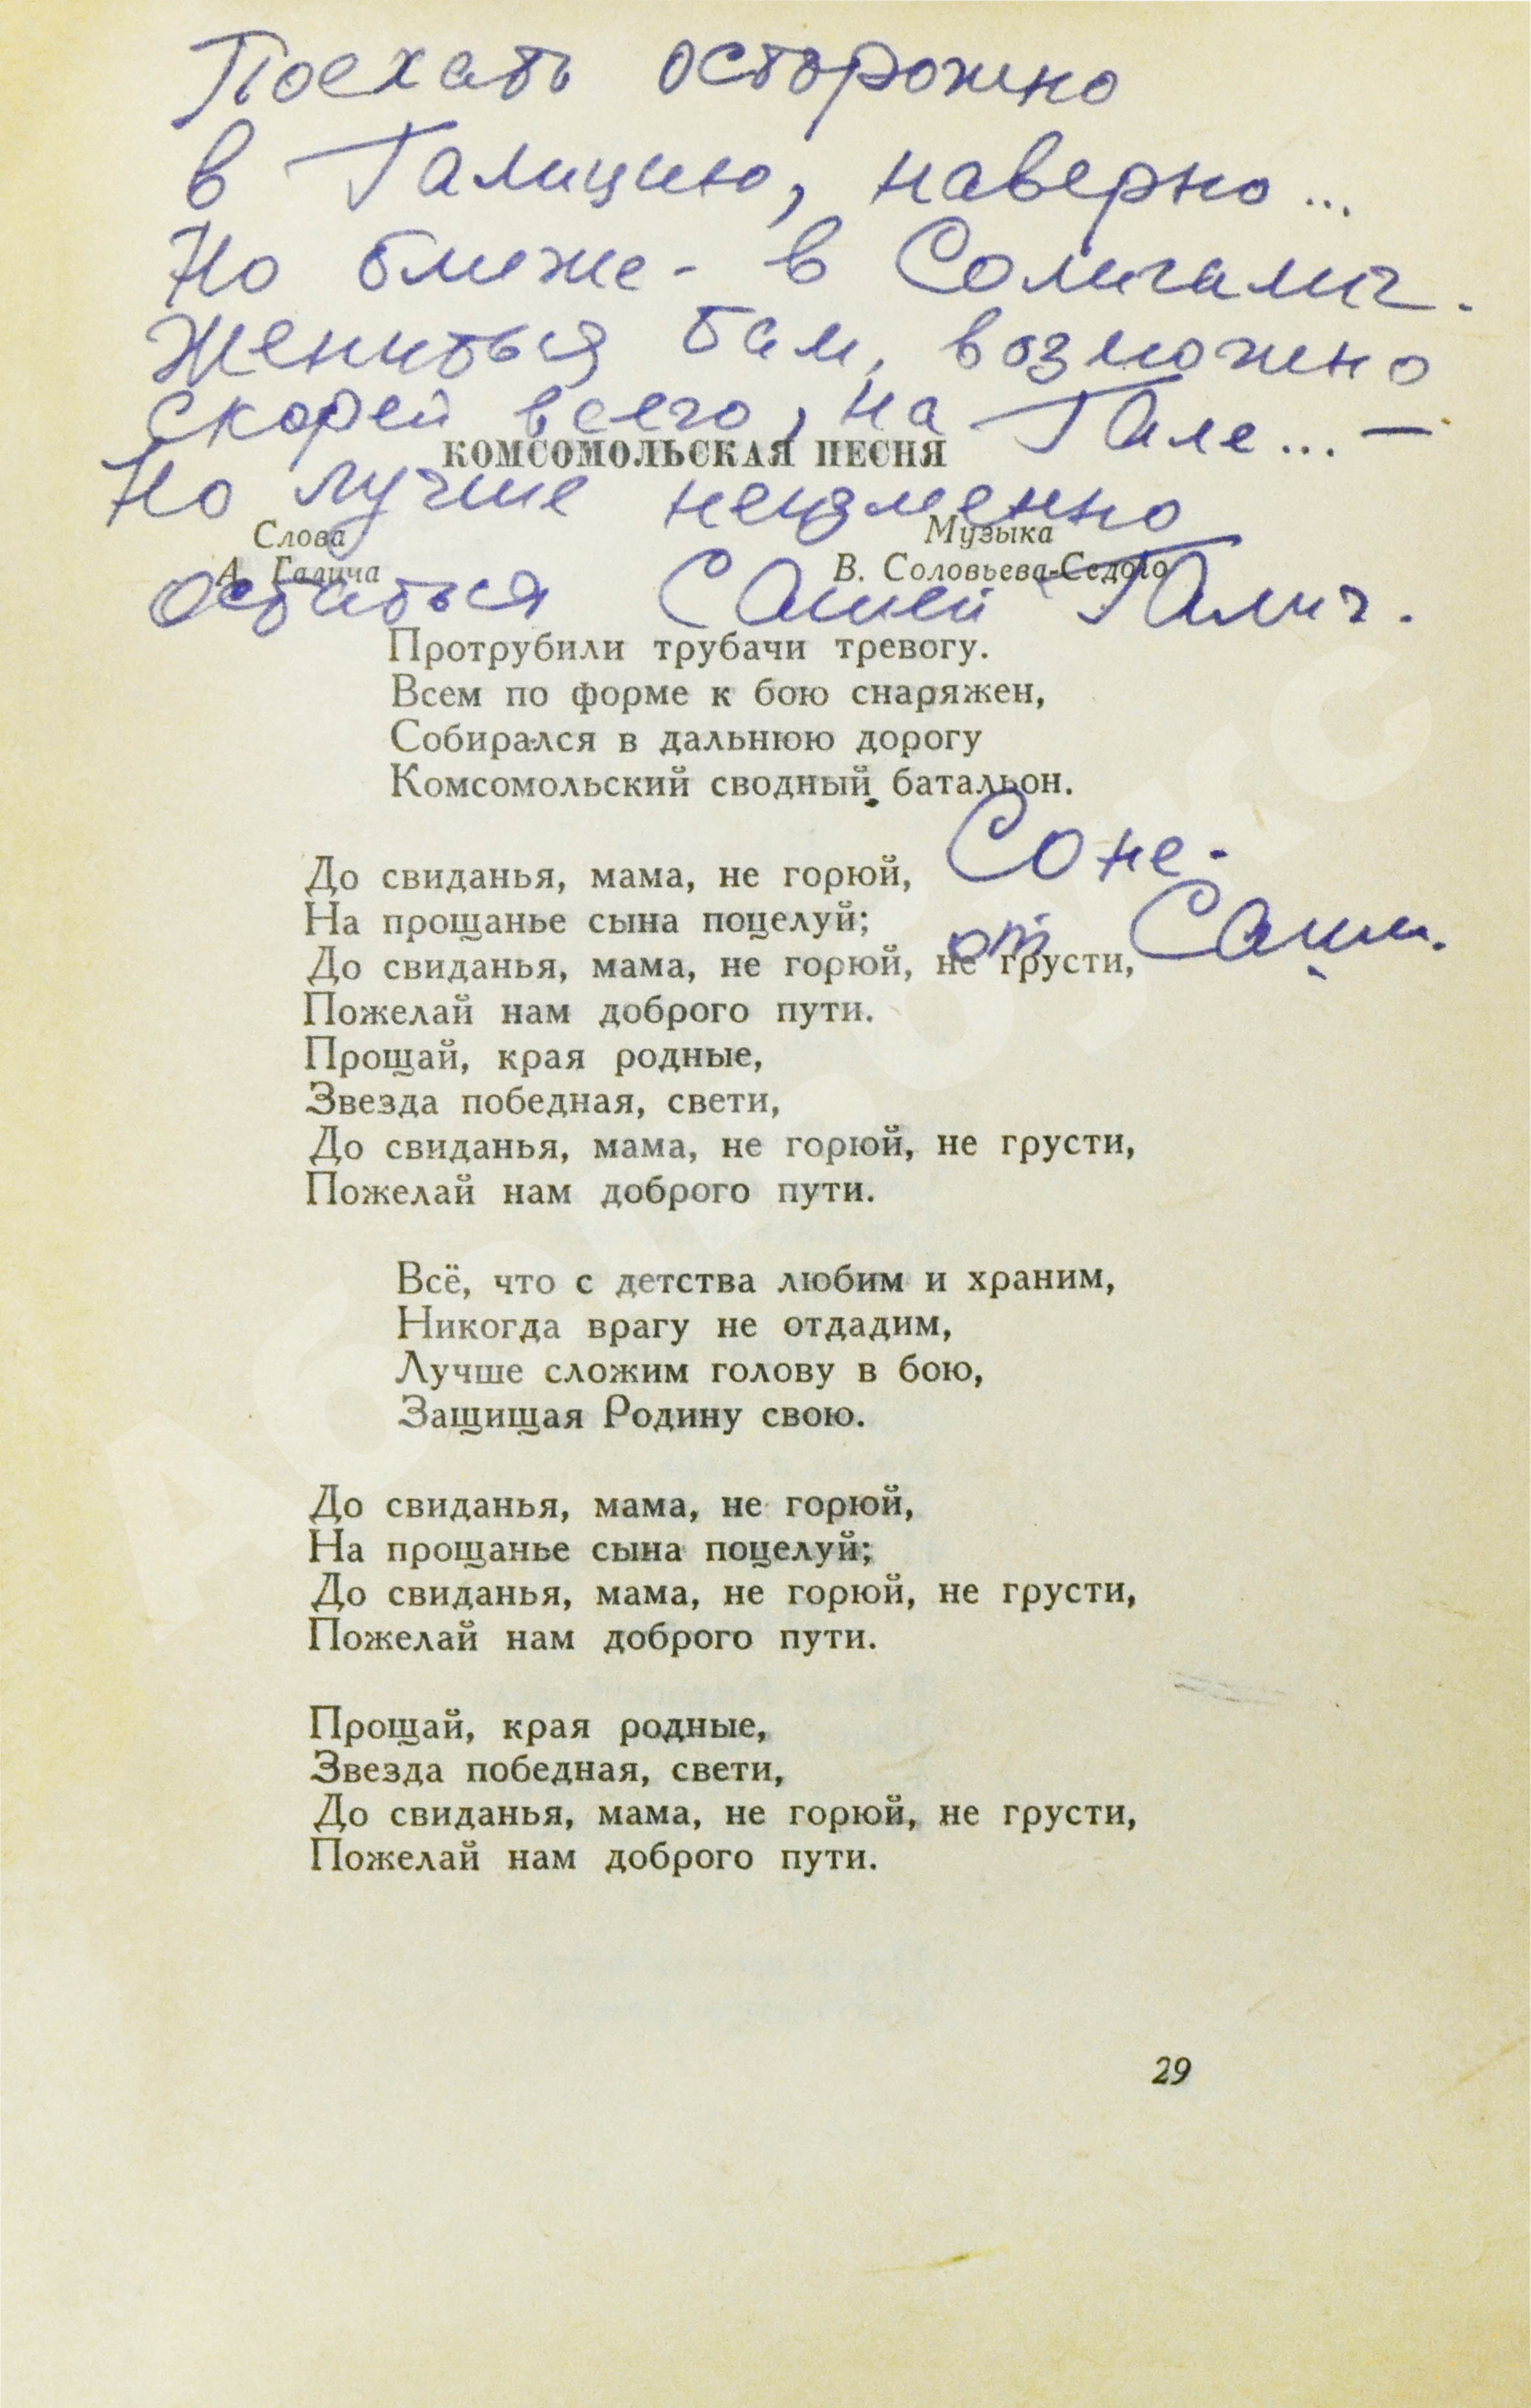 Поехать осторожно
в Галицию, наверно...
Но ближе - в Солигалич.
Жениться там, возможно
скорей всего, на Гале... —
КОМСОМОЛЬСКАЯ ПЕСНЯ
Но лучше неизменно
Слова
А. Галича
Музыка
В. Соловьева-Седого
остаться Сашей Галич.
Протрубили трубачи тревогу.
Всем по форме к бою снаряжен,
Собирался в дальнюю дорогу
Комсомольский сводный батальон.
Соне -
от Саши.
До свиданья, мама, не горюй,
На прощанье сына поцелуй;
До свиданья, мама, не горюй, не грусти,
Пожелай нам доброго пути.
Прощай, края родные,
Звезда победная, свети,
До свиданья, мама, не горюй, не грусти,
Пожелай нам доброго пути.
Всё, что с детства любим и храним,
Никогда врагу не отдадим,
Лучше сложим голову в бою,
Защищая Родину свою.
До свиданья, мама, не горюй,
На прощанье сына поцелуй;
До свиданья, мама, не горюй, не грусти,
Пожелай нам доброго пути.
Прощай, края родные,
Звезда победная, свети,
До свиданья, мама, не горюй, не грусти,
Пожелай нам доброго пути.
29